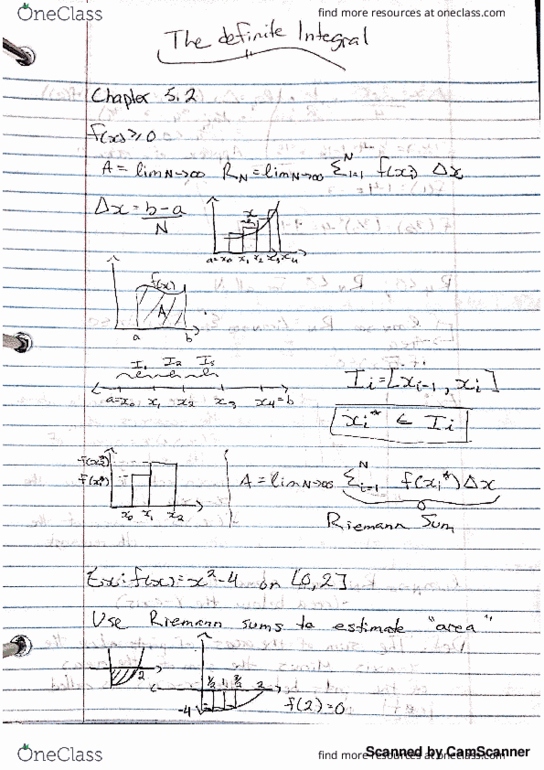 OneClass
find more resources at oneclass.com
The definite Integral
Chapter 5.2
f(x) ≥ 0
A = lim N→∞ R_N = lim N→∞ Σ_{i=1}^N f(x_i) Δx
Δx = b-a / N
a=x₀ x₁ x₂ x₃ x₄
f(x)
A
a b
I₁ I₂ I₃
a=x₀ x₁ x₂ x₃ x₄=b
I_i = [x_{i-1}, x_i]
x_i* ∈ I_i
f(x₂*)
f(x₁*)
x₀ x₁ x₂
A = lim N→∞ Σ_{i=1}^N f(x_i*) Δx
Riemann Sum
Ex: f(x) = x²-4 on [0,2]
Use Riemann sums to estimate "area"
2
½ 1 3/2 2
-4
f(2)=0
Scanned by CamScanner
OneClass
find more resources at oneclass.com